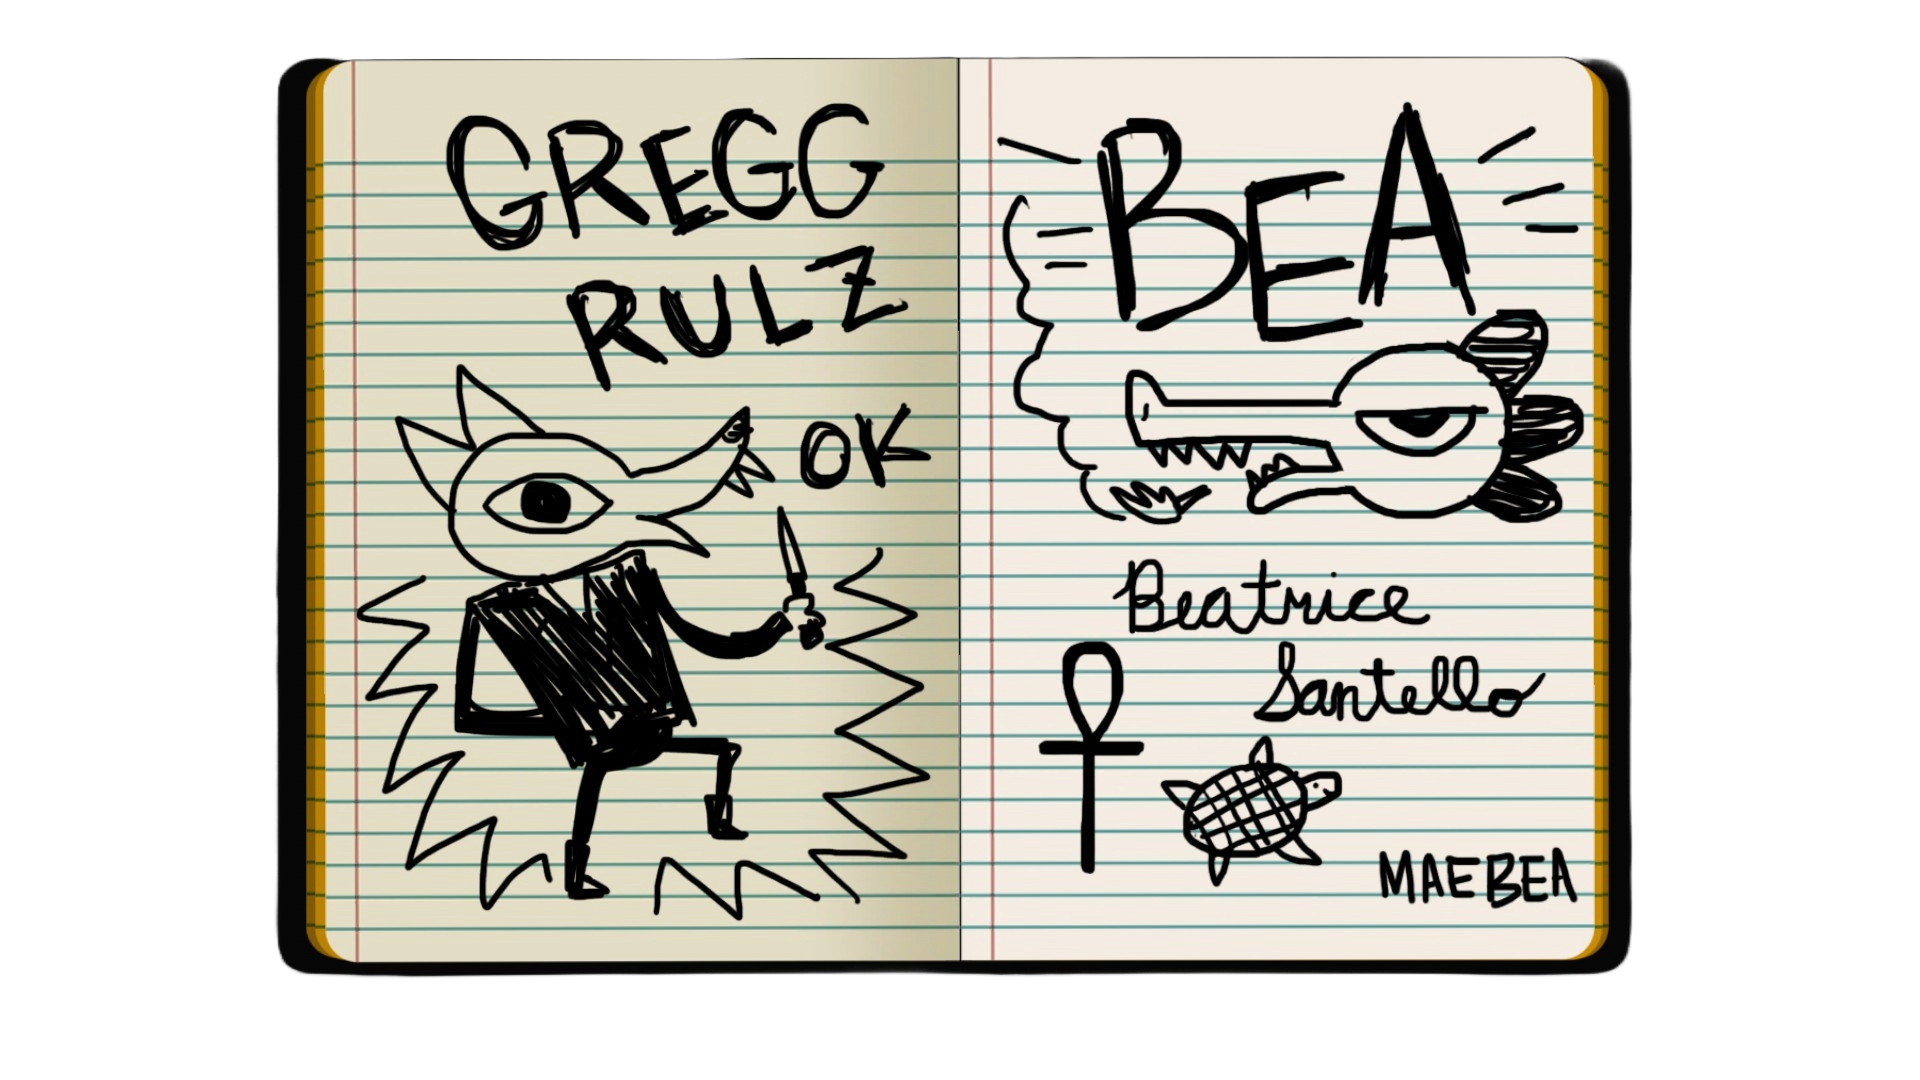 GREGG
RULZ
OK
BEA
Beatrice
Santello
MAEBEA